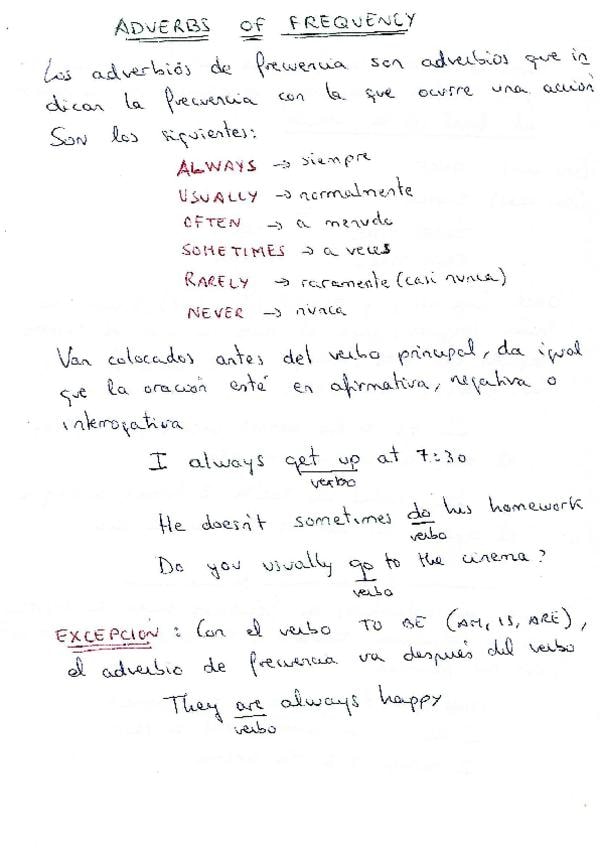 ADVERBS OF FREQUENCY
Los adverbios de frecuencia son adverbios que in
dican la frecuencia con la que ocurre una acción
Son los siguientes:
ALWAYS → siempre
USUALLY → normalmente
OFTEN → a menudo
SOMETIMES → a veces
RARELY → raramente (casi nunca)
NEVER → nunca
Van colocados antes del verbo principal, da igual
que la oración esté en afirmativa, negativa o
interrogativa
I always get up at 7:30
verbo
He doesn't sometimes do his homework
verbo
Do you usually go to the cinema?
verbo
EXCEPCIÓN: Con el verbo TO BE (AM, IS, ARE),
el adverbio de frecuencia va después del verbo
They are always happy
verbo